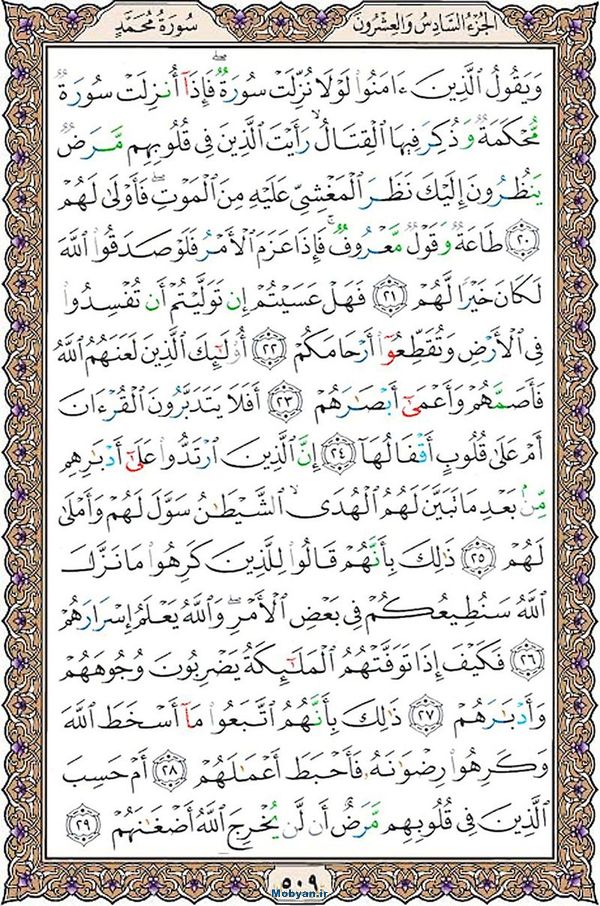 الجزء السادس والعشرون
سورة محمد
وَيَقُولُ ٱلَّذِينَ ءَامَنُوا۟ لَوْلَا نُزِّلَتْ سُورَةٌۖ فَإِذَآ أُنزِلَتْ سُورَةٌ
مُّحْكَمَةٌ وَذُكِرَ فِيهَا ٱلْقِتَالُۙ رَأَيْتَ ٱلَّذِينَ فِى قُلُوبِهِم مَّرَضٌ
يَنظُرُونَ إِلَيْكَ نَظَرَ ٱلْمَغْشِىِّ عَلَيْهِ مِنَ ٱلْمَوْتِۖ فَأَوْلَىٰ لَهُمْ
﴿٢٠﴾ طَاعَةٌ وَقَوْلٌ مَّعْرُوفٌۚ فَإِذَا عَزَمَ ٱلْأَمْرُ فَلَوْ صَدَقُوا۟ ٱللَّهَ
لَكَانَ خَيْرًا لَّهُمْ ﴿٢١﴾ فَهَلْ عَسَيْتُمْ إِن تَوَلَّيْتُمْ أَن تُفْسِدُوا۟
فِى ٱلْأَرْضِ وَتُقَطِّعُوٓا۟ أَرْحَامَكُمْ ﴿٢٢﴾ أُو۟لَٰٓئِكَ ٱلَّذِينَ لَعَنَهُمُ ٱللَّهُ
فَأَصَمَّهُمْ وَأَعْمَىٰٓ أَبْصَٰرَهُمْ ﴿٢٣﴾ أَفَلَا يَتَدَبَّرُونَ ٱلْقُرْءَانَ
أَمْ عَلَىٰ قُلُوبٍ أَقْفَالُهَآ ﴿٢٤﴾ إِنَّ ٱلَّذِينَ ٱرْتَدُّوا۟ عَلَىٰٓ أَدْبَٰرِهِم
مِّنۢ بَعْدِ مَا تَبَيَّنَ لَهُمُ ٱلْهُدَىۙ ٱلشَّيْطَٰنُ سَوَّلَ لَهُمْ وَأَمْلَىٰ
لَهُمْ ﴿٢٥﴾ ذَٰلِكَ بِأَنَّهُمْ قَالُوا۟ لِلَّذِينَ كَرِهُوا۟ مَا نَزَّلَ
ٱللَّهُ سَنُطِيعُكُمْ فِى بَعْضِ ٱلْأَمْرِۖ وَٱللَّهُ يَعْلَمُ إِسْرَارَهُمْ
﴿٢٦﴾ فَكَيْفَ إِذَا تَوَفَّتْهُمُ ٱلْمَلَٰٓئِكَةُ يَضْرِبُونَ وُجُوهَهُمْ
وَأَدْبَٰرَهُمْ ﴿٢٧﴾ ذَٰلِكَ بِأَنَّهُمُ ٱتَّبَعُوا۟ مَآ أَسْخَطَ ٱللَّهَ
وَكَرِهُوا۟ رِضْوَٰنَهُۥ فَأَحْبَطَ أَعْمَٰلَهُمْ ﴿٢٨﴾ أَمْ حَسِبَ
ٱلَّذِينَ فِى قُلُوبِهِم مَّرَضٌ أَن لَّن يُخْرِجَ ٱللَّهُ أَضْغَٰنَهُمْ ﴿٢٩﴾
٥٠٩
Mobyan.ir